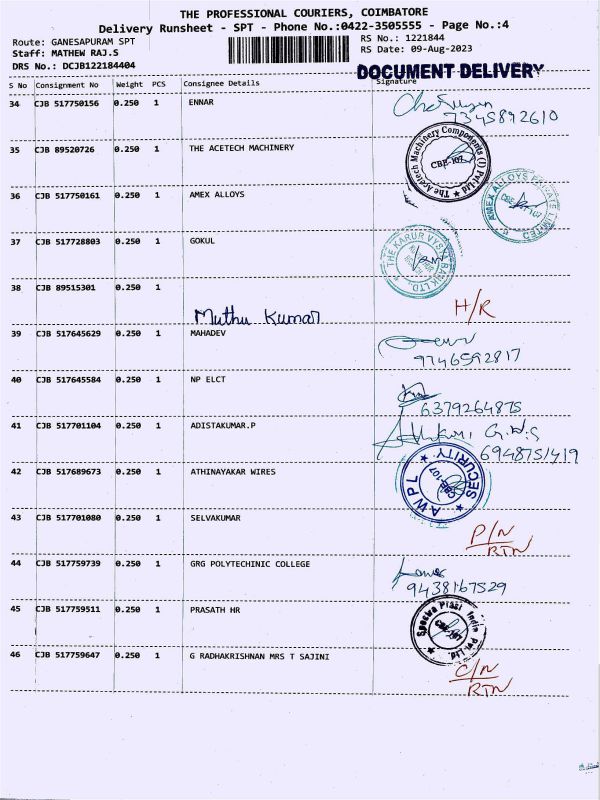 THE PROFESSIONAL COURIERS, COIMBATORE
Delivery Runsheet - SPT - Phone No.:0422-3505555 - Page No.:4
Route: GANESAPURAM SPT
Staff: MATHEW RAJ.S
DRS No.: DCJB122184404
RS No.: 1221844
RS Date: 09-Aug-2023
DOCUMENT DELIVERY
S No Consignment No Weight PCS Consignee Details Signature
34 CJB 517750156 0.250 1 ENNAR
7345892610
35 CJB 89520726 0.250 1 THE ACETECH MACHINERY
The Acetech Machinery Components (I) Pvt Ltd ★
CBE-107
36 CJB 517750161 0.250 1 AMEX ALLOYS
AMEX ALLOYS PRIVATE LIMITED
37 CJB 517728803 0.250 1 GOKUL
THE KARUR VYSYA BANK LTD.
38 CJB 89515301 0.250 1
Muthu Kumar
H/R
39 CJB 517645629 0.250 1 MAHADEV
9746592817
40 CJB 517645584 0.250 1 NP ELCT
6379264875
41 CJB 517701104 0.250 1 ADISTAKUMAR.P
6948751419
42 CJB 517689673 0.250 1 ATHINAYAKAR WIRES
AWPL ★ SECURITY ★
CBE-107
43 CJB 517701080 0.250 1 SELVAKUMAR
P/N
RTN
44 CJB 517759739 0.250 1 GRG POLYTECHINIC COLLEGE
9438167529
45 CJB 517759511 0.250 1 PRASATH HR
Spectra Plast India Pvt Ltd.
46 CJB 517759647 0.250 1 G RADHAKRISHNAN MRS T SAJINI
C/N
RTN